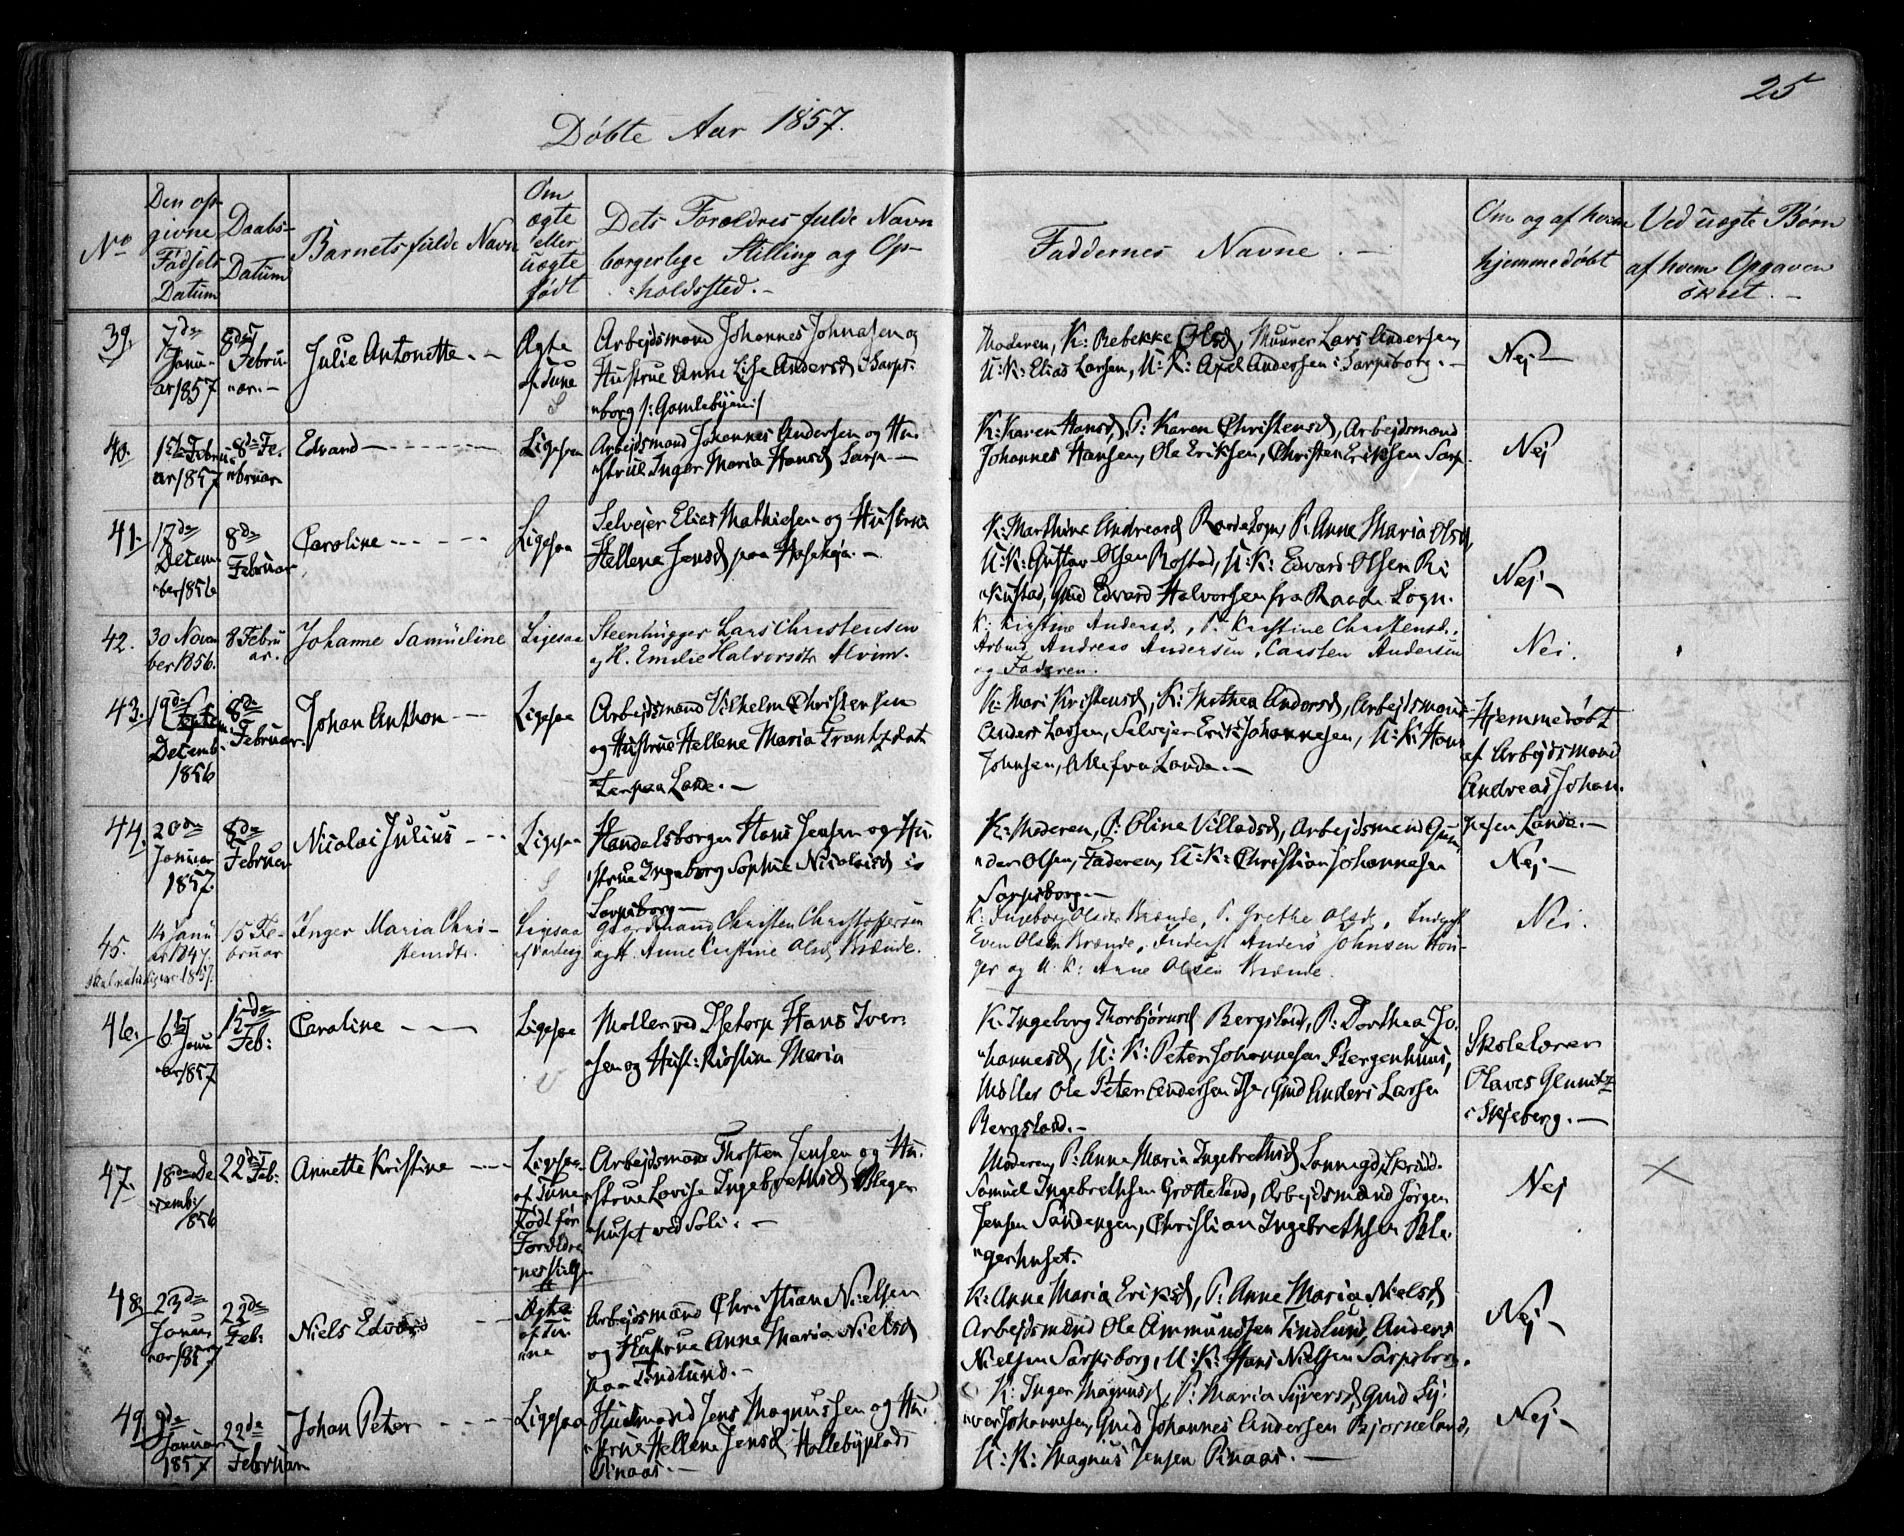 25
Døbte Aar 1857.
No
Den op-
givne
Fødsels
Datum
Daabs-
Datum
Barnets fulde Navn
Om
ægte
eller
uægte
født
Dets Forældres fulde Navn
borgerlige Stilling og Op-
holdssted.
Faddernes Navne.
Om og af hvem
hjemmedøbt
Ved uægte Børn
af hvem Opgaven
skeet.
39.
7de
Janu-
ar 1857
8de
Febru-
ar.
Julie Antonette
Ægte
af Tune
Arbejdsmand Johannes Johnasen og
Hustrue Anne Lise Andersd i Sarps-
borg /: Gamlebyen :/
Moderen, K: Rebekke Olsd, Muurer Lars Andersen,
U: K: Elias Larsen, U: K: Axel Andersen i Sarpsborg.
Nej
40.
1ste Febru-
ar 1857
8de Fe-
bruar
Edvard
Ligesaa
Arbejdsmand Johannes Andersen og Hu-
strue Inger Maria Hansd Sarp
K: Karen Hansd, P: Karen Christensd, Arbejdsmænd
Johannes Hansen, Ole Eriksen, Christen Eriksen Sarp.
Nej
41.
17de
Decem-
ber 1856
8de
Februar
Caroline
Ligesaa
Selvejer Elias Mathiesen og Hustrue
Hellene Jensd paa
K: Marthine Andreasd Raade Sogn, P: Anne Maria Olsd,
U: K: Gustav Olsen Rostad, U: K: Edvard Olsen Ri-
kustad, Gmd Edvard Halvorsen fra Raade Sogn.
Nej
42.
30 Novem
ber 1856.
8 Febru
ar.
Johanne Samueline
Ligesaa
Steenhugger Lars Christensen
og H. Emilie Halvorsdtr Alvim.
K: Kirstine Andersd, P. Kirstine Christensd,
Arbmd Andreas Andersen, Carsten Andersen
og Faderen.
Nei.
43.
19de
Decemb.
1856
8de
Februar
Johan Anthon
Ligesaa
Arbejdsmand Vilhelm Christensen
og Hustrue Hellene Maria Frantzdat-
ter paa Lande.
K: Mari Kristensd, K: Mathea Andersd, Arbejdsmand
Anders Larsen, Selvejer Erik Johannesen, U: K: Hans
Johnsen, Alle fra Lande.
Hjemmedøbt
af Arbejdsmand
Andreas Johan-
nesen Lande.
44.
20de
Januar
1857.
8de
Februar
Nicolai Julius
Ligesaa
Handelsborger Hans Jensen og Hu-
strue Ingeborg Sophie Nicolaisd i
Sarpsborg
K: Moderen, P: Oline Villadsd, Arbejdsmænd Gun-
der Olsen, Faderen, U: K: Christian Johannesen
Sarpsborg.
Nej
45.
14 Janu
ar 1847.
skal 1857.
15 Fe-
bruar
Inger Maria Chri-
stensdtr.
Ligesaa
af Varteig
Gaardmand Christen Christoffersen
og H. Anne Kirstine Olsd Brænde.
K: Ingeborg Olsdtr Brænde, P. Grethe Olsd,
Even Olsen Brænde, Anders Johnsen Hau-
ger og U. K: Arne Olsen Brænde.
Nei.
46.
6te
Janu
ar 1857
15de
Feb:
Caroline
Ligesaa
Møller ved Isetorp Hans Iver-
sen og Hust: Kirstine Maria
K: Ingeborg Thorbjørnsd Bergsland, P: Dorthea Jo-
hannesd, U: K: Peter Johannesen Bergenhuus,
Møller Ole Peter Andersen Ise, Gmd Anders Larsen
Bergsland.
Skolelærer
Olaves
i Skjeberg.
47.
18de De-
cemb.
1856
22de
Feb:
Annette Kristine
Ligesaa
af Tune
Født før
Forældre-
nes
Arbejdsmand Thosten Jensen og Hu-
strue Lovise Ingebrethsd Bleger-
huset ved Soli.
Moderen, P: Anne Maria Ingebrethsd
Samuel Ingebrethsen Grotteland, Arbejdsmænd Jørgen
Jensen Sandengen, Christian Ingebrethsen Ble-
gerhuset.
Nej
48.
23de
Janu-
ar 1857
22de
Feb:
Niels Edvard
Ægte
af Tu-
ne
Arbejdsmand Christian Nielsen
og Hustrue Anne Maria Nielsd
paa Tindlund.
K: Anne Maria Eriksd, P: Anne Maria Nielsd,
Arbejdsmænd Ole Ammundsen Tindlund, Anders
Nielsen Sarpsborg, U: K: Hans Nielsen Sarpsborg.
Nej
49.
9de
Januar
1857
22de
Februar
Johan Peter
Ligesaa
Huusmand Jens Magnussen og Hu-
strue Hellene Jensd Hallebyplads
Pinaas.
K: Inger Magnusd, P: Maria Syversd, Gmd Sy-
ver Johannesen, Gmd Johannes Andersen Bjørneland,
U: K: Magnus Jensen Pinaas.
Nej